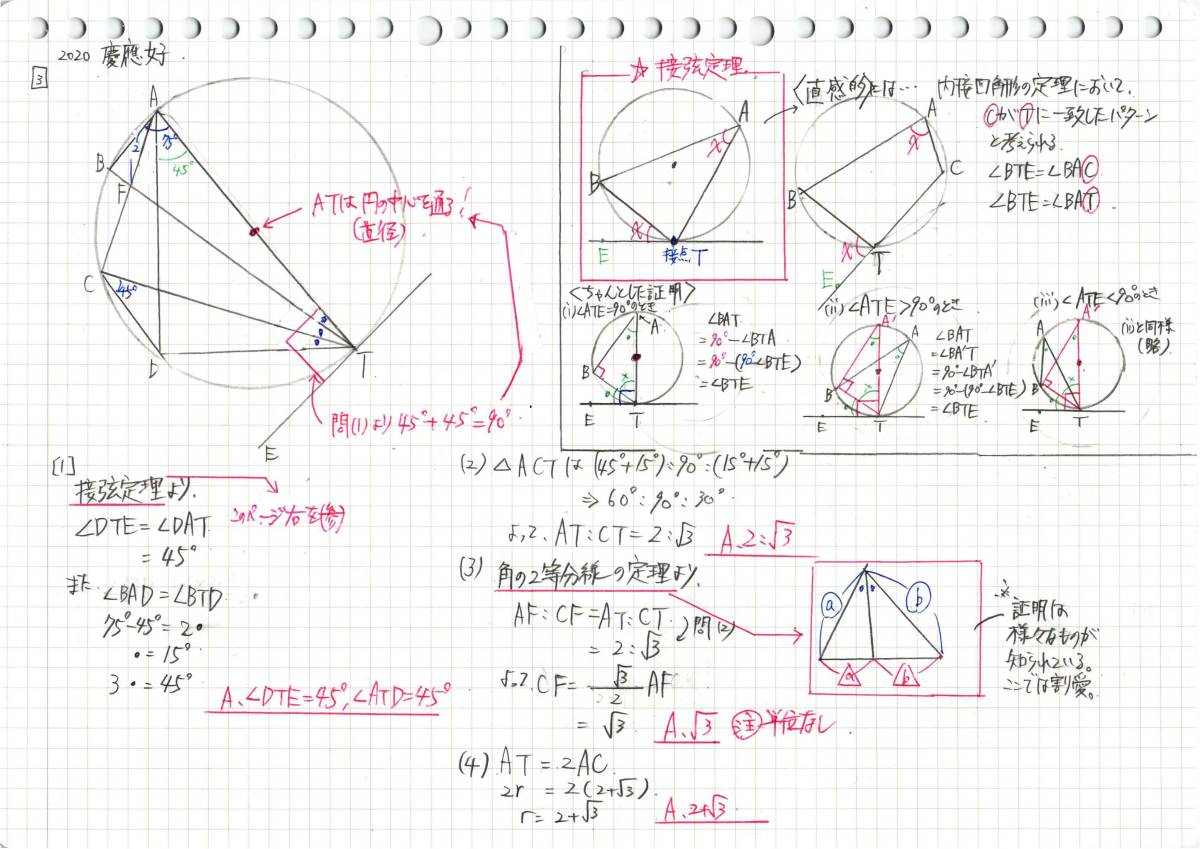 2020 慶應女子.
3
A
75°
2
45°
B
F
ATは円の中心を通る!
(直径)
C
45°
D
T
E
問(1)より 45°+45°=90°
☆接弦定理
A
x
B
x
E
接点T
<直感的>には… 内接四角形の定理において、
CがTに一致したパターン
と考えられる.
∠BTE=∠BAC
∠BTE=∠BAT
A
x
C
B
x
T
E
<ちゃんとした証明>
(i)∠ATE=90°のとき
A
B
x
E
T
∠BAT
=90°-∠BTA
=90°-(90°-∠BTE)
=∠BTE
(ii)∠ATE>90°のとき
A'
A
B
x
E
T
∠BAT
=∠BA'T
=90°-∠BTA'
=90°-(90°-∠BTE)
=∠BTE
(iii)∠ATE<90°のとき
A'
A
B
x
E
T
(ii)と同様
(略)
[1]
接弦定理より、
このページ右を(参)
∠DTE=∠DAT
=45°
また
∠BAD=∠BTD
75°-45°=2•
•=15°
3•=45°
A、∠DTE=45°, ∠ATD=45°
(2) △ACTは (45°+15°):90°:(15°+15°)
⇒ 60°:90°:30°
よって、AT:CT=2:√3
A、2:√3
(3) 角の2等分線の定理より、
AF:CF=AT:CT
=2:√3
問(2)
よって CF=√3/2 AF
=√3
A、√3
注 単位なし
a
b
a
b
※
証明は
様々なものが
知られている。
ここでは割愛。
(4) AT=2AC
2r=2(2+√3)
r=2+√3
A、2+√3